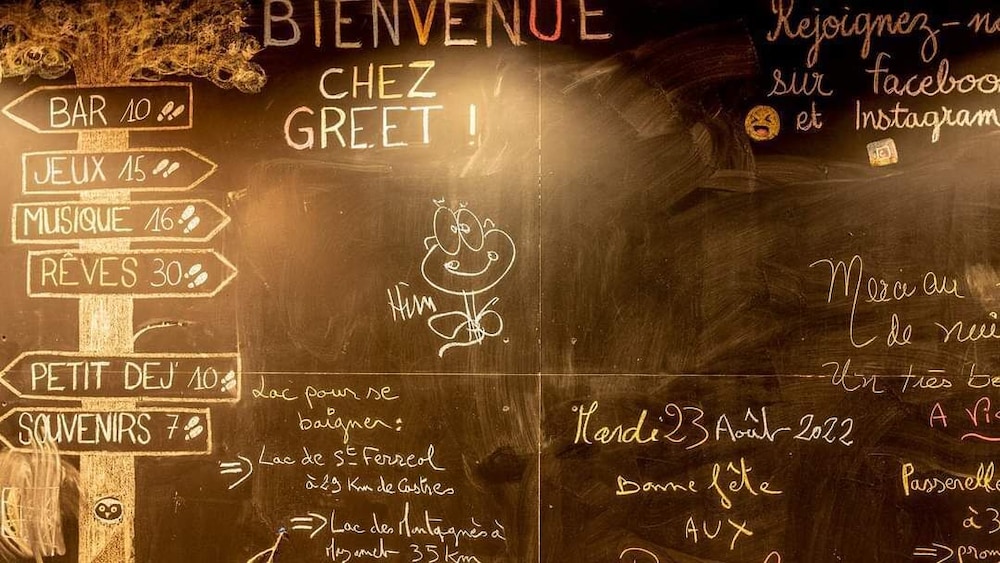 BIENVENUE
CHEZ
GREET !
Rejoignez-n
sur faceboo
et Instagram
BAR 10
JEUX 15
MUSIQUE 16
RÊVES 30
PETIT DEJ' 10
SOUVENIRS 7
Lac pour se
baigner:
=> Lac de St Ferreol
à 29 Km de Castres
=> Lac des Montagnès à
Mazamet 35 Km
Merci au
de nui
Un très be
Mardi 23 Août 2022
Bonne fête
AUX
A Vi
Passerelle
à 3
=> prom